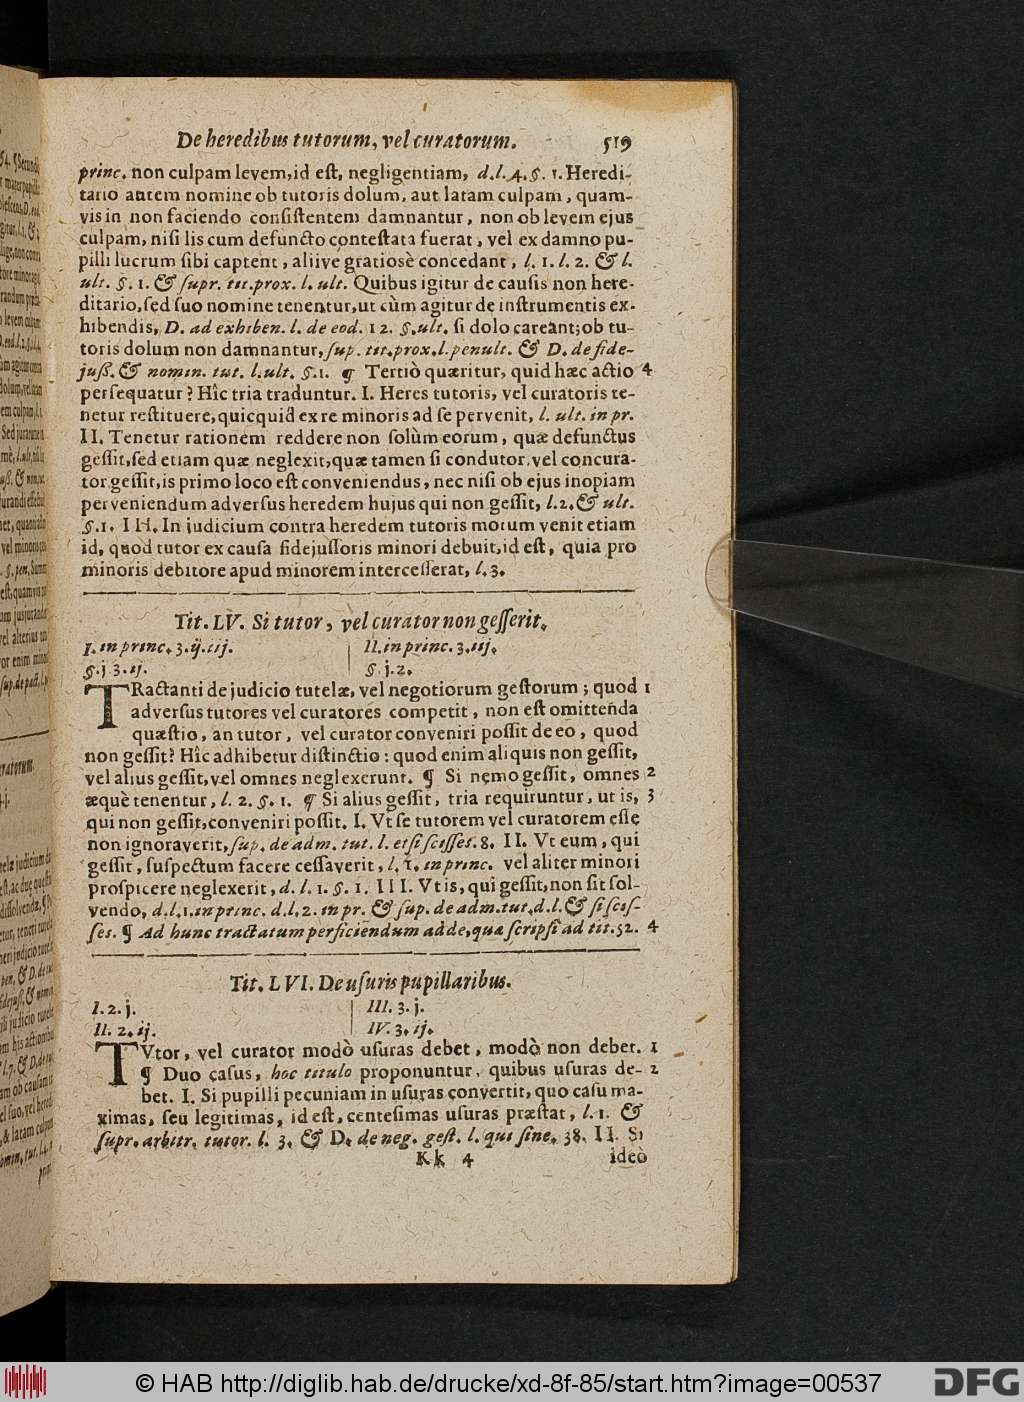 De heredibus tutorum, vel curatorum. 519
princ. non culpam levem, id est, negligentiam, d. l. 4. §. 1. Heredi-
tario autem nomine ob tutoris dolum, aut latam culpam, quam-
vis in non faciendo consistentem damnantur, non ob levem ejus
culpam, nisi lis cum defuncto contestata fuerat, vel ex damno pu-
pilli lucrum sibi captent, aliive gratiosè concedant, l. 1. l. 2. & l.
ult. §. 1. & supr. tit. prox. l. ult. Quibus igitur de causis non here-
ditario, sed suo nomine tenentur, ut cùm agitur de instrumentis ex-
hibendis, D. ad exhiben. l. de eod. 12. §. ult. si dolo careant; ob tu-
toris dolum non damnantur, sup. tit. prox. l. penult. & D. de fide-
juss. & nomin. tut. l. ult. §. 1. ¶ Tertiò quæritur, quid hæc actio 4
persequatur? Hîc tria traduntur. I. Heres tutoris, vel curatoris te-
netur restituere, quicquid ex re minoris ad se pervenit, l. ult. in pr.
II. Tenetur rationem reddere non solùm eorum, quæ defunctus
gessit, sed etiam quæ neglexit, quæ tamen si condutor, vel concura-
tor gessit, is primo loco est conveniendus, nec nisi ob ejus inopiam
perveniendum adversus heredem hujus qui non gessit, l. 2. & ult.
§. 1. III. In judicium contra heredem tutoris motum venit etiam
id, quod tutor ex causa fidejussoris minori debuit, id est, quia pro
minoris debitore apud minorem intercesserat, l. 3.
Tit. LV. Si tutor, vel curator non gesserit.
I. in princ. 3. ij. iij.
§. j. 3. ij.
II. in princ. 3. iij.
§. j. 2.
TRactanti de judicio tutelæ, vel negotiorum gestorum; quod 1
adversus tutores vel curatores competit, non est omittenda
quæstio, an tutor, vel curator conveniri possit de eo, quod
non gessit? Hîc adhibetur distinctio: quod enim aliquis non gessit,
vel alius gessit, vel omnes neglexerunt. ¶ Si nemo gessit, omnes 2
æquè tenentur, l. 2. §. 1. ¶ Si alius gessit, tria requiruntur, ut is, 3
qui non gessit, conveniri possit. I. Vt se tutorem vel curatorem esse
non ignoraverit, sup. de adm. tut. l. etsi scisses. 8. II. Vt eum, qui
gessit, suspectum facere cessaverit, l. 1. in princ. vel aliter minori
prospicere neglexerit, d. l. 1. §. 1. III. Vt is, qui gessit, non sit sol-
vendo, d. l. 1. in princ. d. l. 2. in pr. & sup. de adm. tut. d. l. & si scis-
ses. ¶ Ad hunc tractatum perficiendum adde, quæ scripsi ad tit. 52. 4
Tit. LVI. De usuris pupillaribus.
I. 2. j.
II. 2. ij.
III. 3. j.
IV. 3. ij.
TVtor, vel curator modò usuras debet, modò non debet. 1
¶ Duo casus, hoc titulo proponuntur, quibus usuras de- 2
bet. I. Si pupilli pecuniam in usuras convertit, quo casu ma-
ximas, seu legitimas, id est, centesimas usuras præstat, l. 1. &
supr. arbitr. tutor. l. 3. & D. de neg. gest. l. qui sine. 38. II. Si
Kk 4 ideò
© HAB http://diglib.hab.de/drucke/xd-8f-85/start.htm?image=00537
DFG